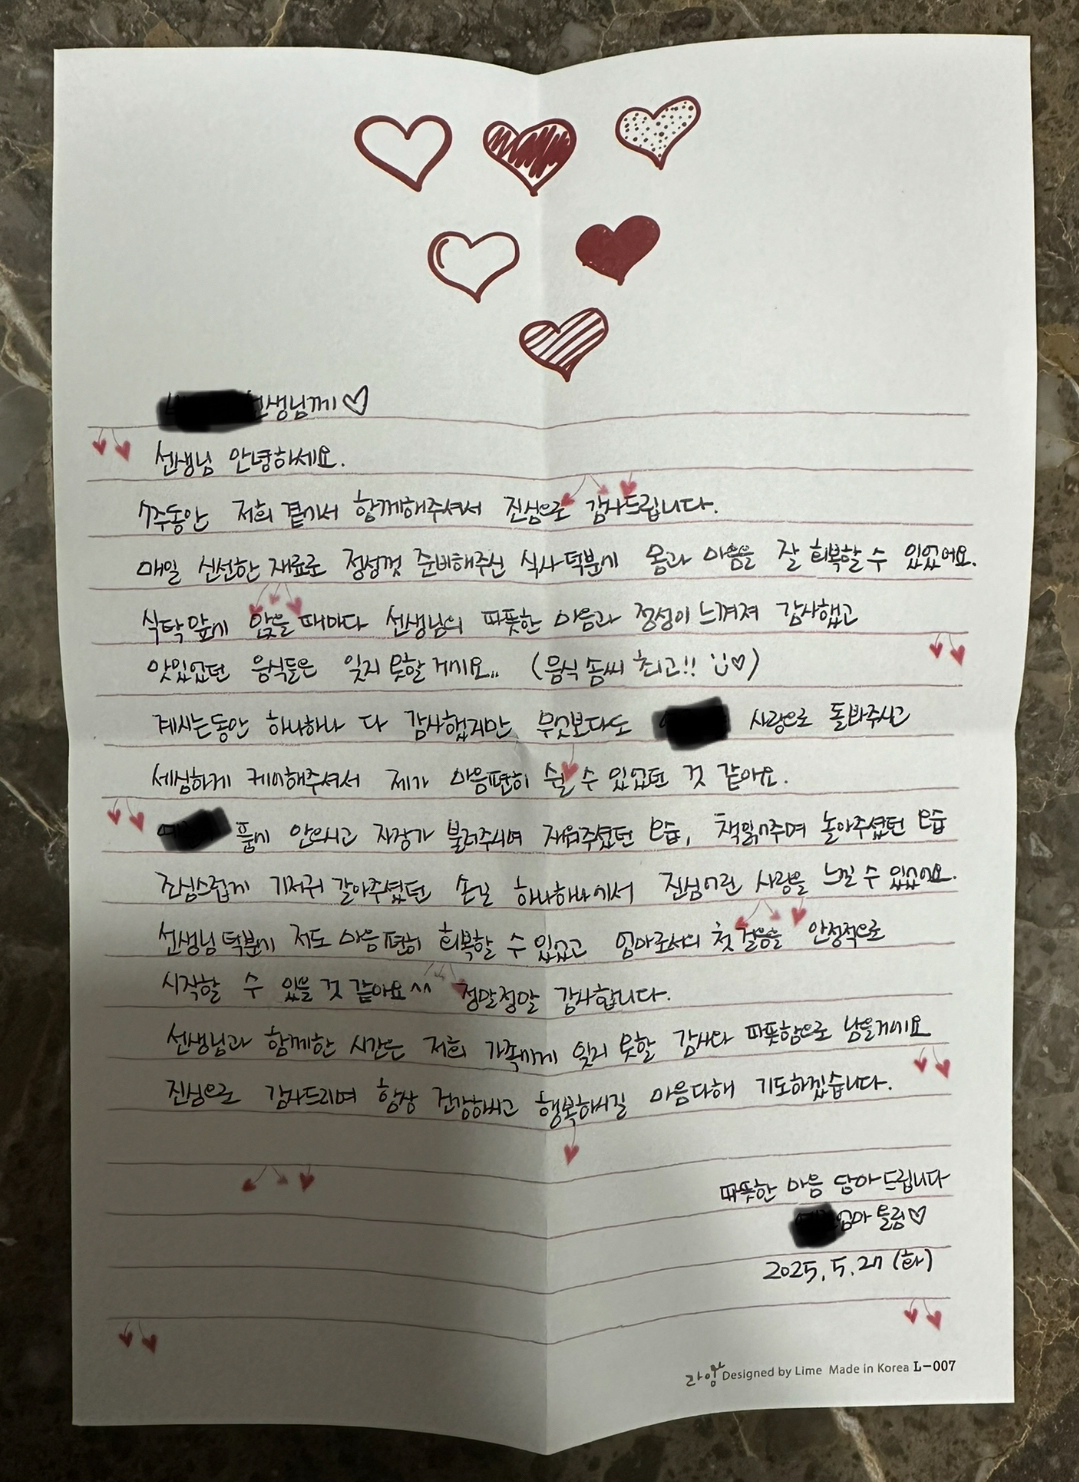 선생님께♡
선생님 안녕하세요.
7주동안 저희 곁에서 함께해주셔서 진심으로 감사드립니다.
매일 신선한 재료로 정성껏 준비해주신 식사덕분에 몸과 마음을 잘 회복할 수 있었어요.
식탁 앞에 앉을 때마다 선생님의 따뜻한 마음과 정성이 느껴져 감사했고
맛있었던 음식들은 잊지 못할 거예요.. (음식 솜씨 최고!! ♡)
계시는동안 하나하나 다 감사했지만 무엇보다도 사랑으로 돌봐주시고
세심하게 케어해주셔서 제가 마음편히 쉴 수 있었던 것 같아요.
품에 안으시고 자장가 불러주시며 재워주셨던 모습, 책읽어주며 놀아주셨던 모습
조심스럽게 기저귀 갈아주셨던 손길 하나하나에서 진심어린 사랑을 느낄 수 있었어요.
선생님 덕분에 저도 마음 편히 회복할 수 있었고 엄마로서의 첫 걸음을 안정적으로
시작할 수 있을 것 같아요^^ 정말정말 감사합니다.
선생님과 함께한 시간은 저희 가족에게 잊지 못할 감사와 따뜻함으로 남을거예요
진심으로 감사드리며 항상 건강하시고 행복하시길 마음다해 기도하겠습니다.
따뜻한 마음 담아드립니다
엄마 드림♡
2025. 5. 27 (화)
라임 Designed by Lime Made in Korea L-007